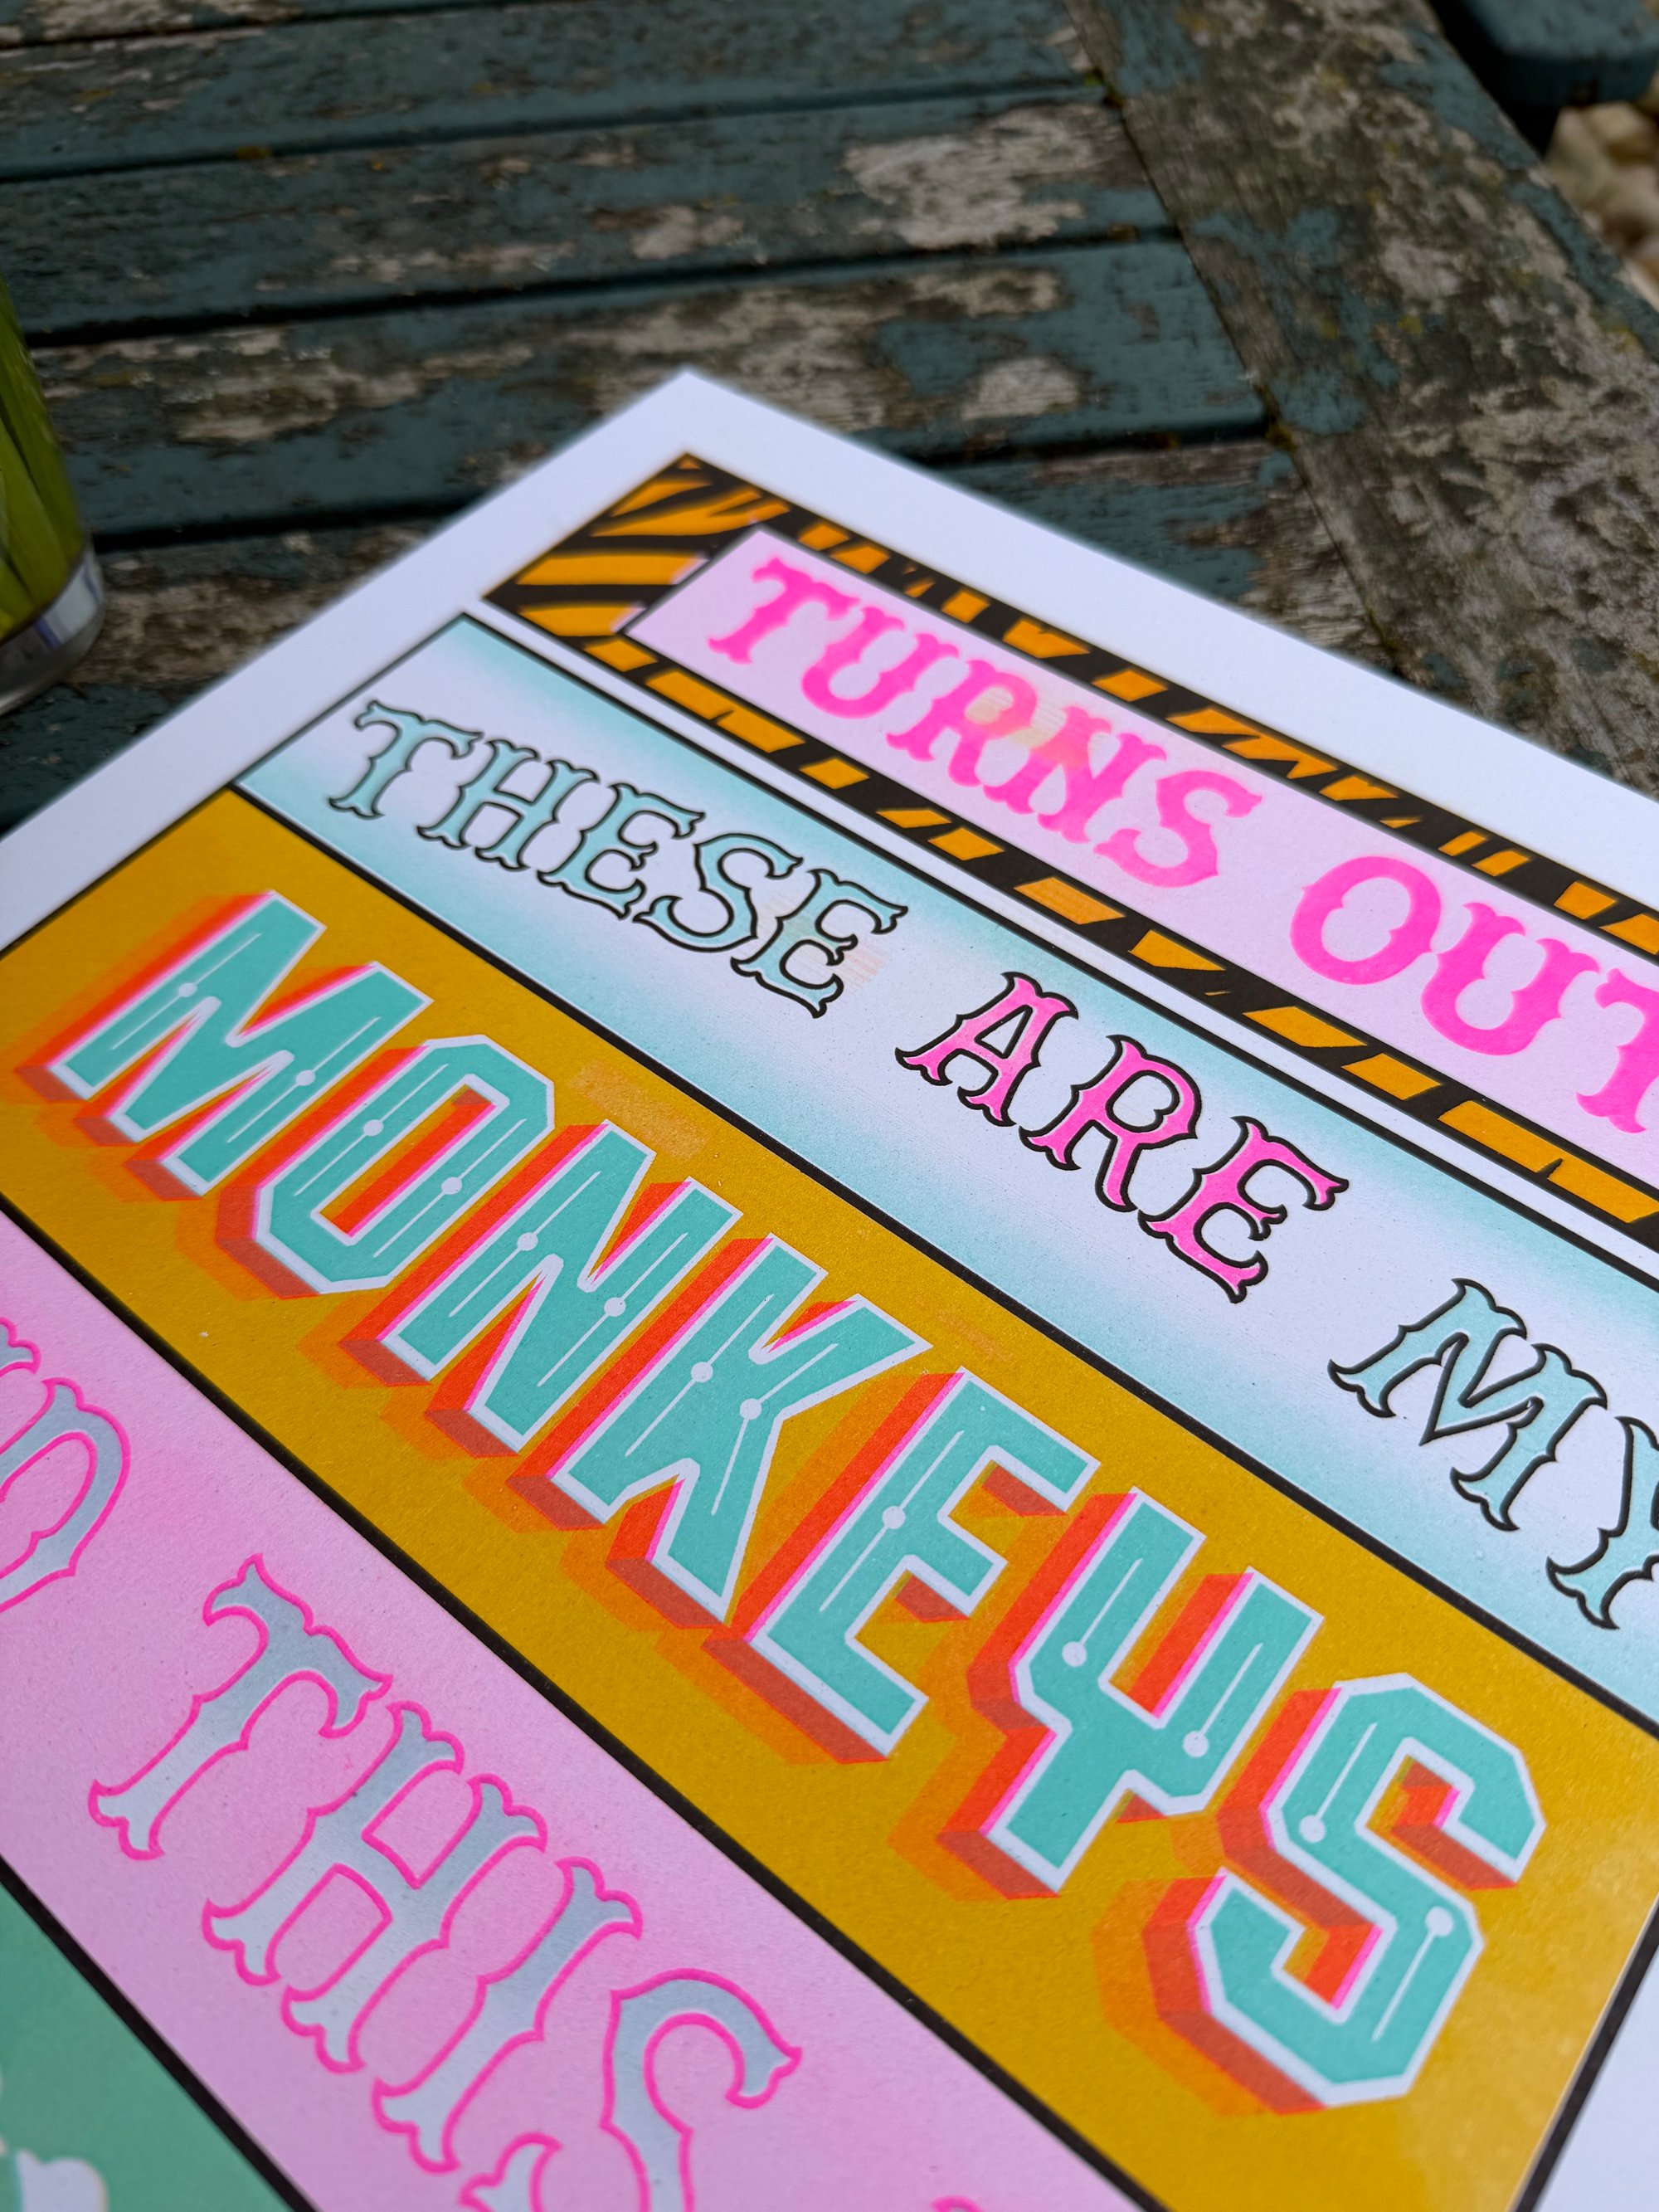 TURNS OUT
THESE ARE MY
MONKEYS
THIS